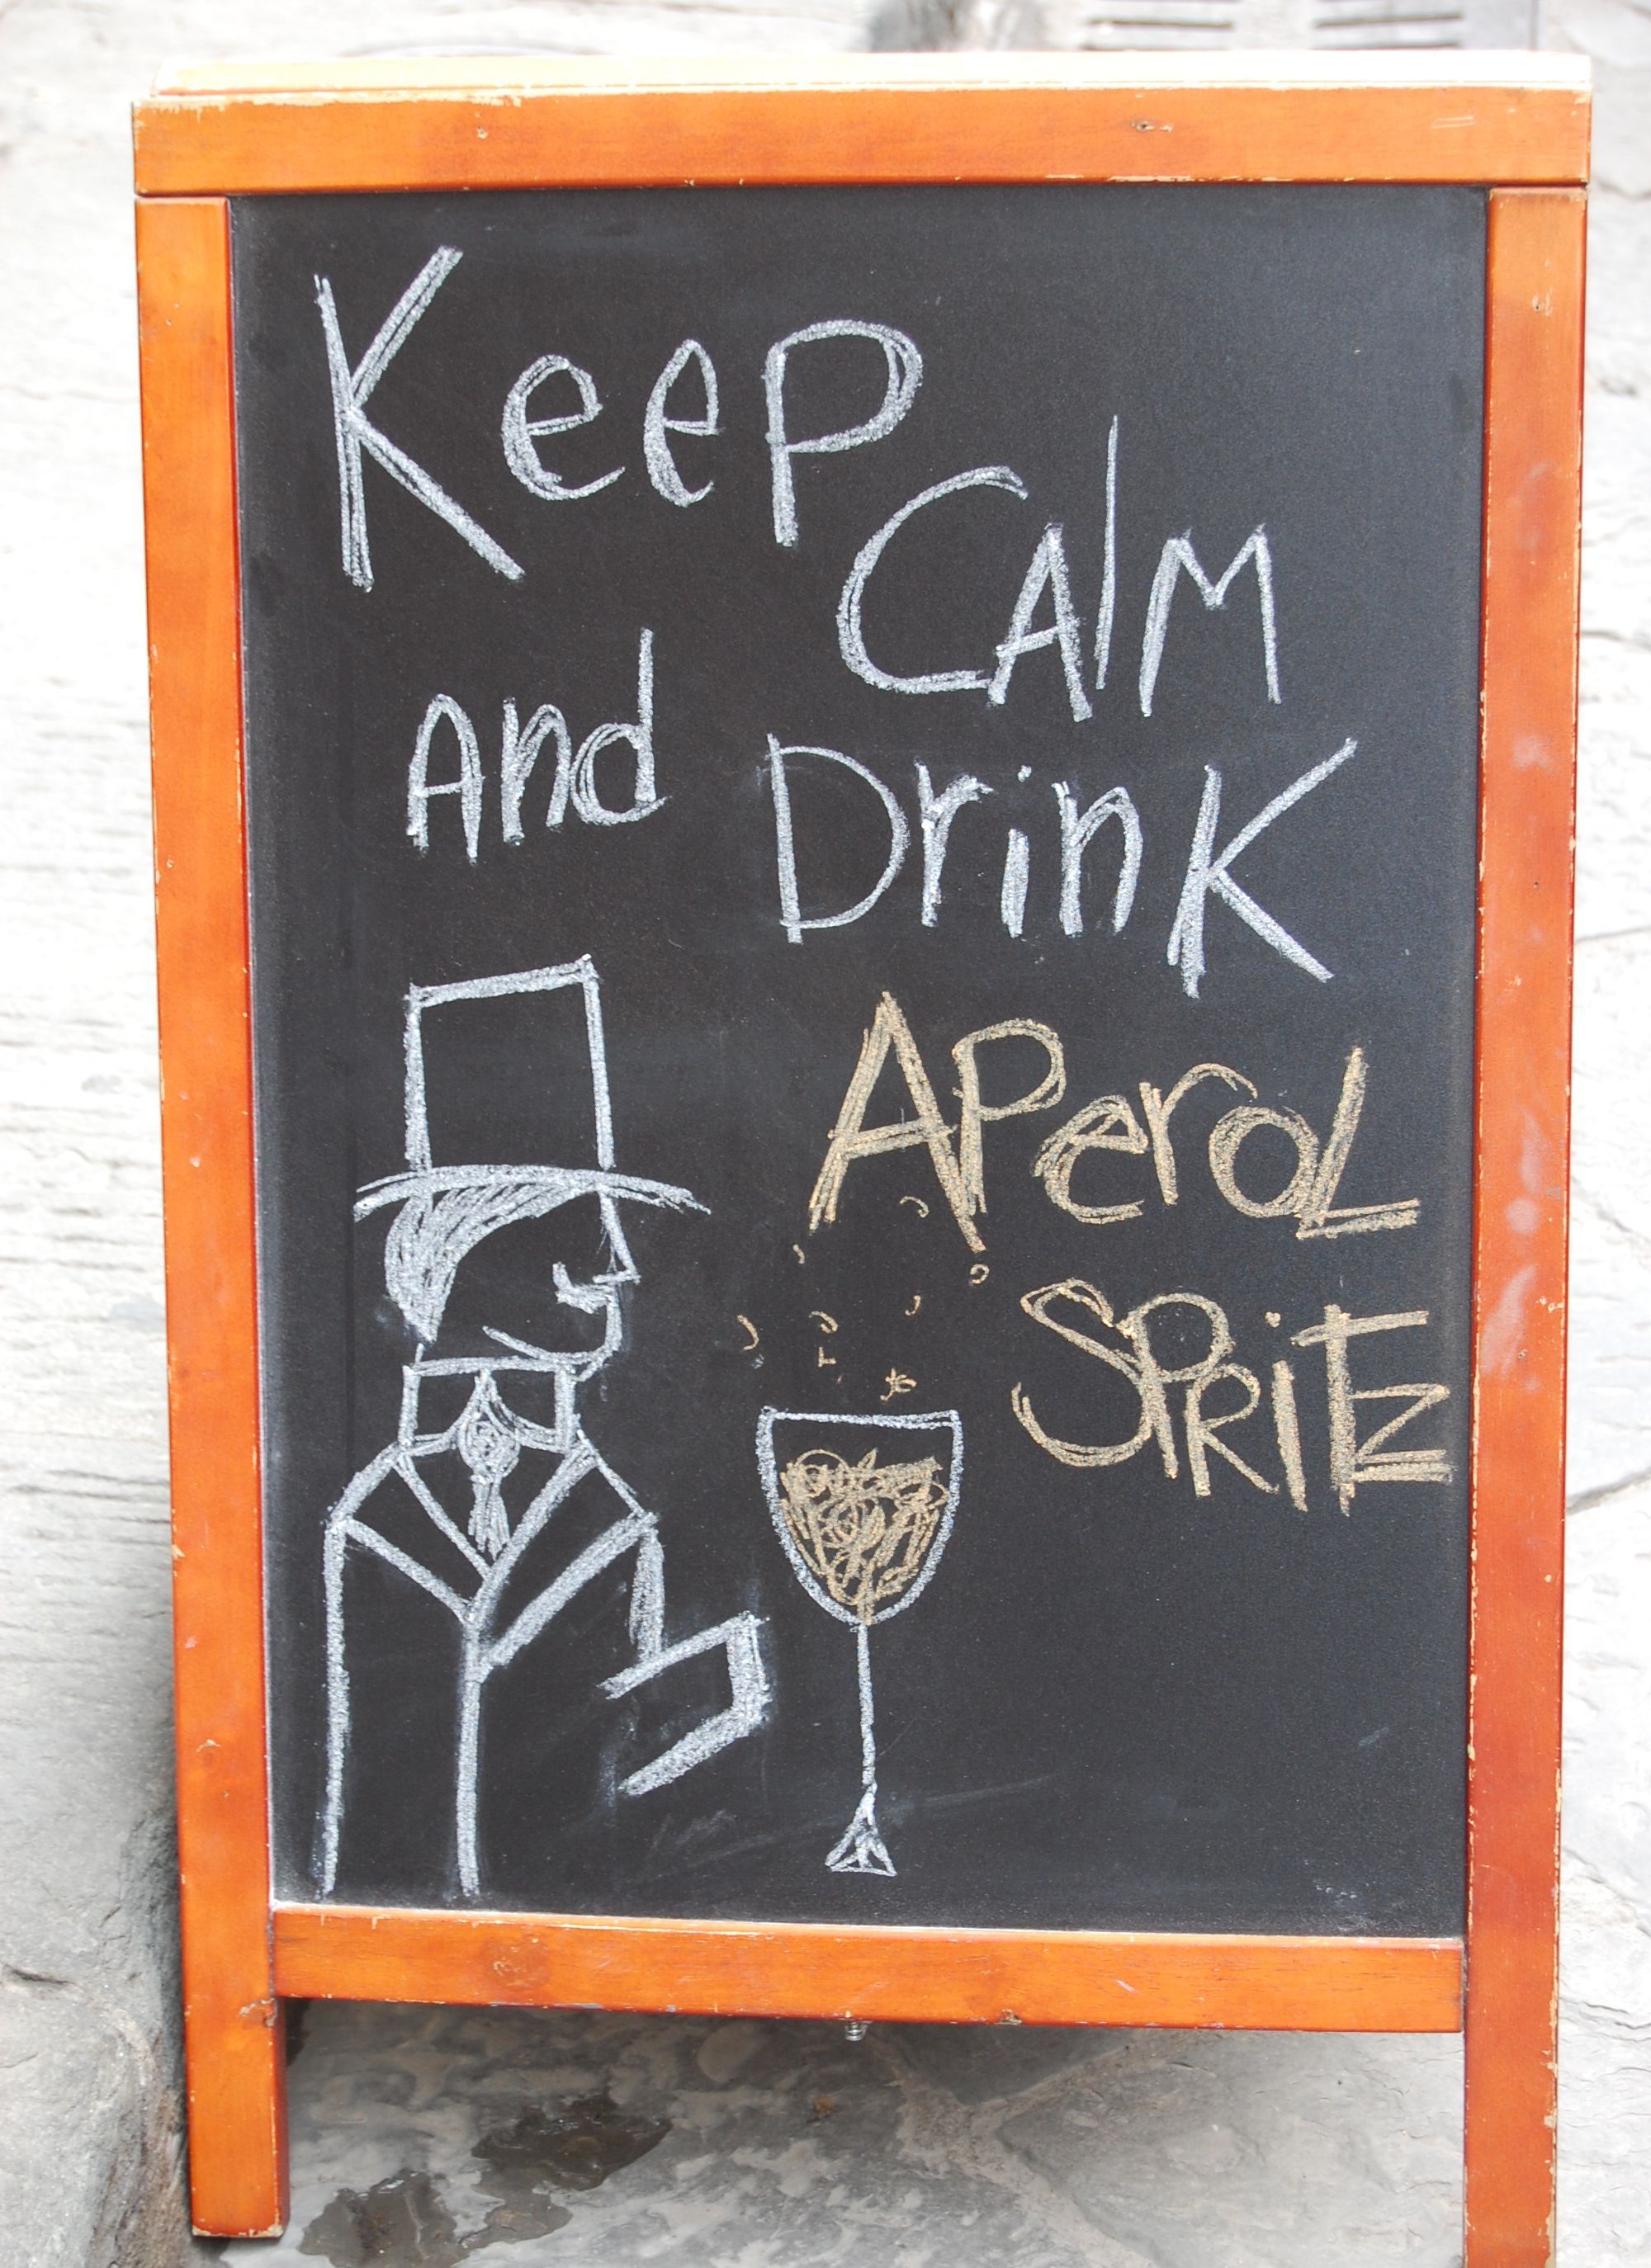 KeeP
CAlM
And DrinK
APeroL
SPRiTz